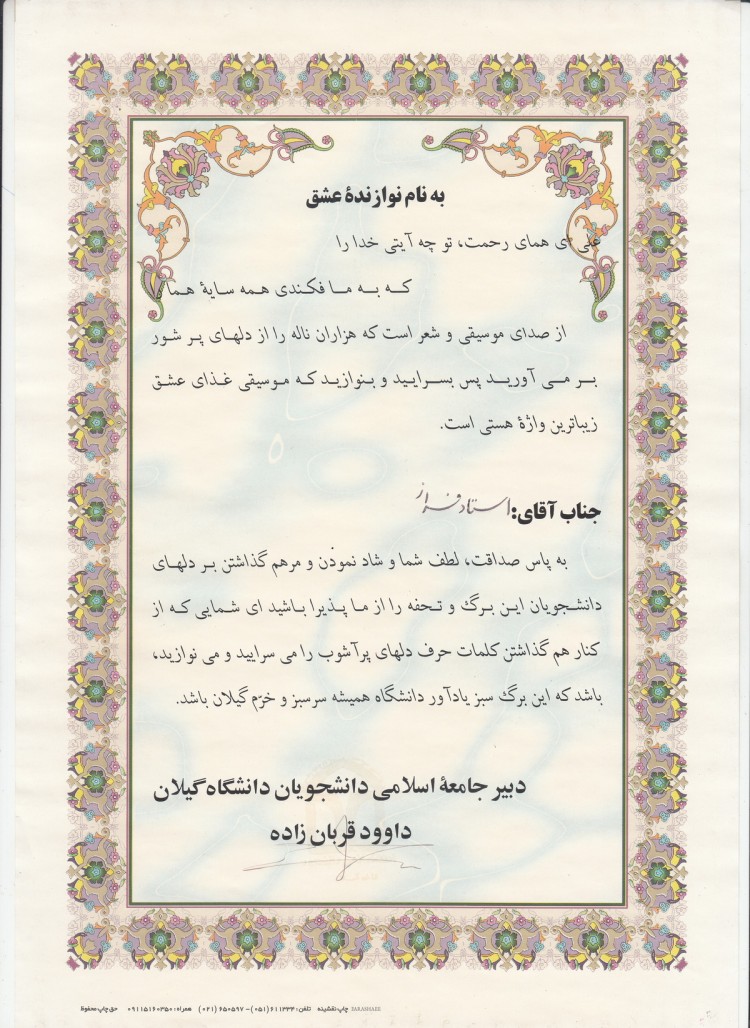 به نام نوازندهٔ عشق
علی ای همای رحمت، تو چه آیتی خدا را
که به ما فکندی همه سایهٔ هما
از صدای موسیقی و شعر است که هزاران ناله را از دلهای پر شور
بر می آورید پس بسرایید و بنوازید که موسیقی غذای عشق
زیباترین واژهٔ هستی است.
جناب آقای: استاد فراز
به پاس صداقت، لطف شما و شاد نمودن و مرهم گذاشتن بر دلهای
دانشجویان این برگ و تحفه را از ما پذیرا باشید ای شمایی که از
کنار هم گذاشتن کلمات حرف دلهای پرآشوب را می سرایید و می نوازید،
باشد که این برگ سبز یادآور دانشگاه همیشه سرسبز و خرّم گیلان باشد.
دبیر جامعهٔ اسلامی دانشجویان دانشگاه گیلان
داوود قربان زاده
چاپ نقشینه تلفن: ۶۱۱۳۳۴(۰۵۱) – ۶۵۰۵۹۷ (۰۲۱) همراه: ۰۹۱۱۵۱۶۰۳۵۰ حق چاپ محفوظ